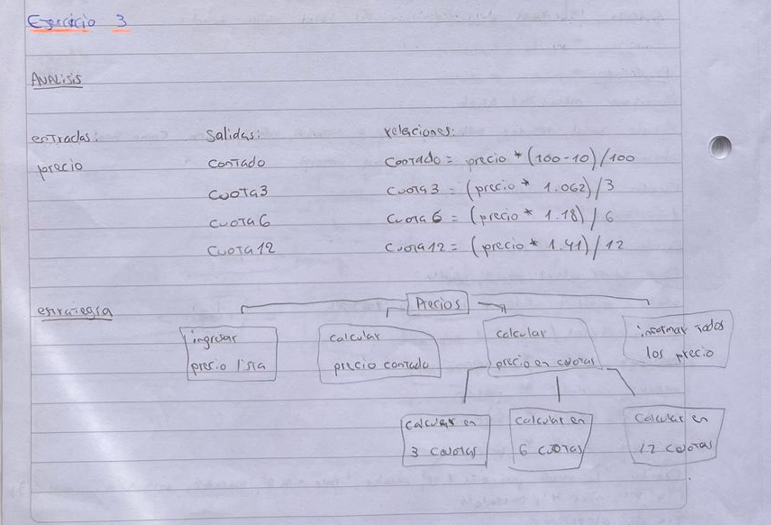 Ejercicio 3
ANALISIS
entradas: salidas: relaciones:
precio contado contado = precio * (100-10)/100
cuota3 cuota3 = (precio * 1.062)/3
cuota6 cuota6 = (precio * 1.18)/6
cuota12 cuota12 = (precio * 1.41)/12
estrategia
Precios
ingresar
precio lista
calcular
precio contado
calcular
precio en cuotas
informar todos
los precio
calcular en
3 cuotas
calcular en
6 cuotas
calcular en
12 cuotas